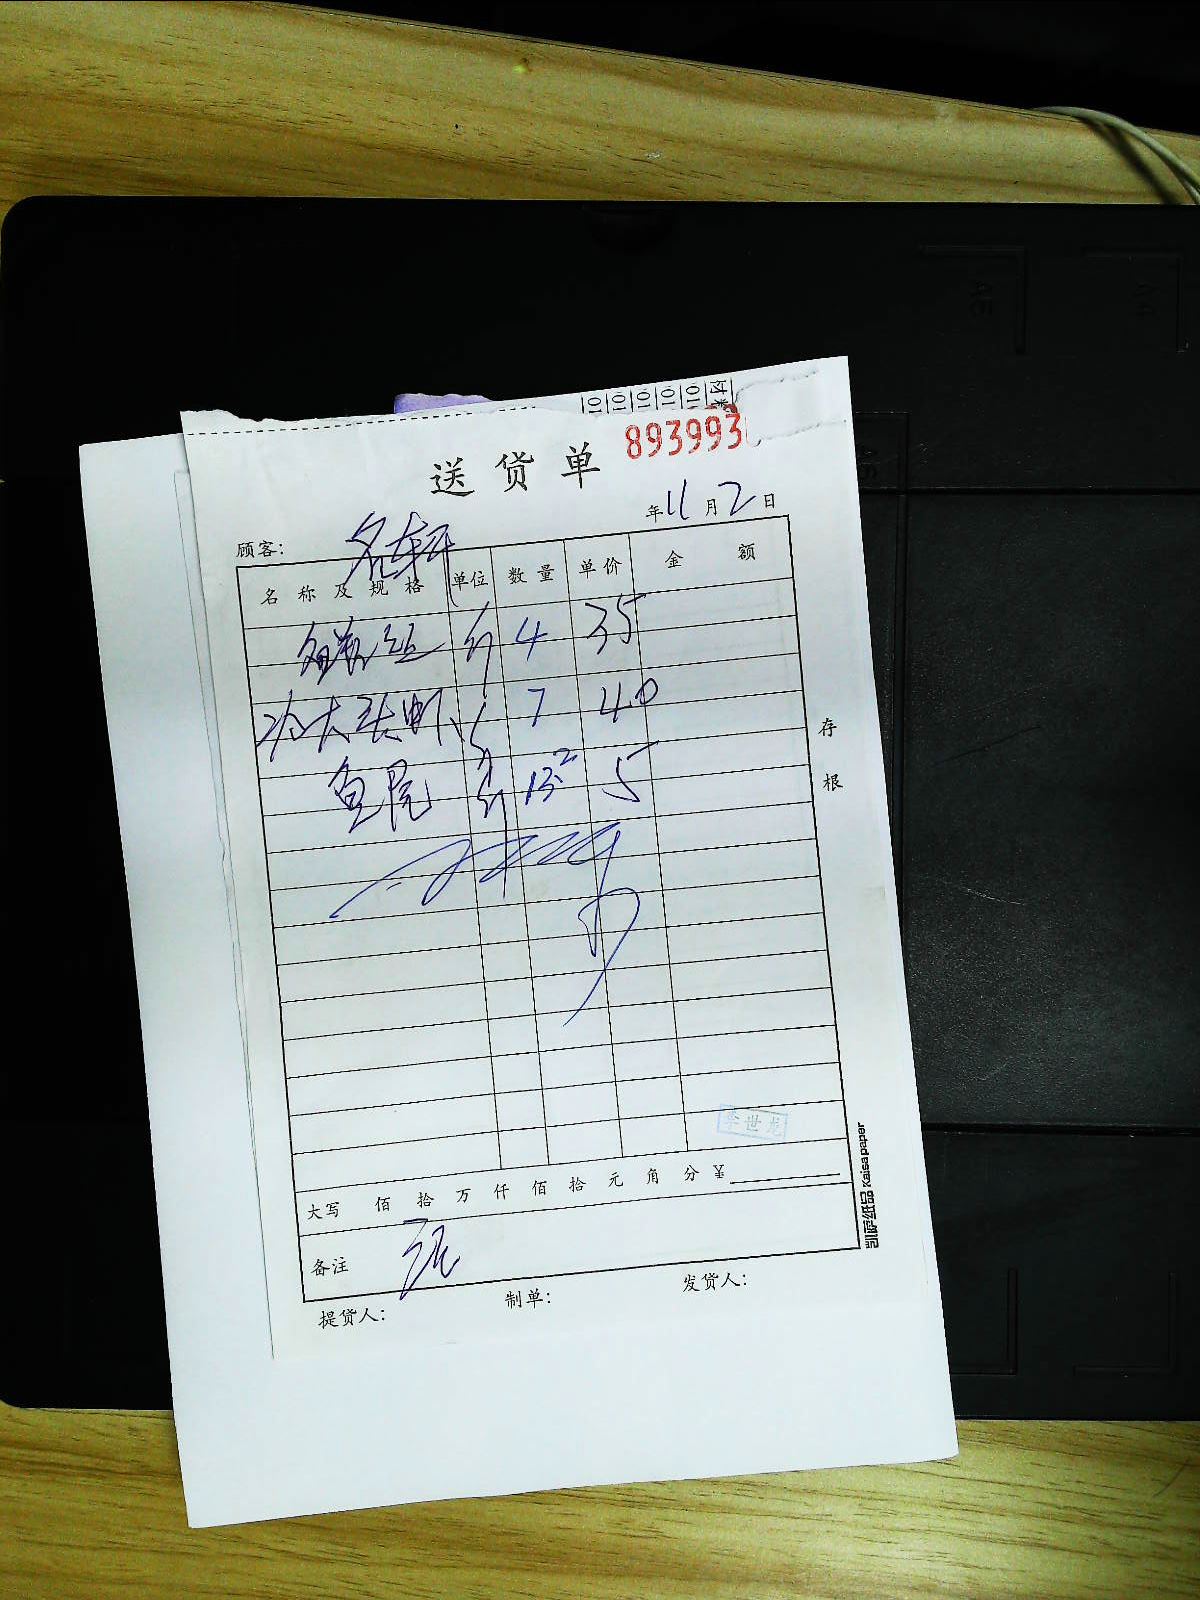 送货单 893993
年11月2日
顾客: 名轩
名称及规格 单位 数量 单价 金额
斤 4 35
冰大头虾 斤 7 40
鱼尾 斤 13.2 5
存根
李世龙
大写 佰 拾 万 仟 佰 拾 元 角 分 ¥
备注
提货人: 制单: 发货人:
凯萨纸品 Kaisa paper
A5
A4